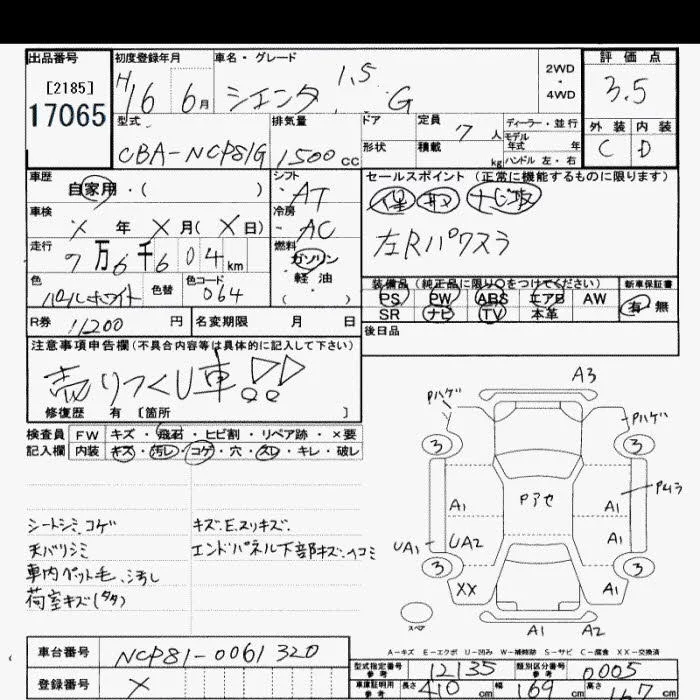 出品番号 初度登録年月 車名・グレード 2WD・4WD 評価点
[2185] 17065 H16 6月 シエンタ 1.5 G 3.5
型式 排気量 ドア 定員 ディーラー・並行 外装 内装
CBA-NCP81G 1500cc 形状 7人 モデル年式 年 C D
積載 kg ハンドル 左・右
車歴 シフト セールスポイント (正常に機能するものに限ります)
自家用・( ) AT 保 取 ナビ取
車検 冷房
X 年 X 月 ( X 日) AC 左Rパワスラ
走行 燃料
7万6千604km ガソリン・軽油 ( )
色 色替 カラーコード 装備品 (純正品に限り○をつけてください) 新車保証書
パールホワイト 064 PS PW ABS エアB AW 有・無
R券 11200円 名変期限 月 日 SR ナビ TV 本革
注意事項申告欄(不具合内容等は具体的に記入して下さい) 後日品
売りつくし車!!
修復歴 有 〔箇所 〕
検査員 FW キズ・飛石・ヒビ割・リペア跡・×要
記入欄 内装 キズ・汚レ・コゲ・穴・スレ・キレ・破レ
シートシミ、コゲ キズ、E、スリキズ、
天バリシミ エンドパネル下部キズ、ヘコミ
車内ペット毛、汚れ
荷室キズ(タタ)
A3
Pハゲ Pハゲ
3 3
Pアセ Pムラ
A1 A1
UA1 UA2 A1
3 3
XX A1
スペア A1 A2
A-キズ E-エクボ U-凹み W-補修跡 S-サビ C-腐食 XX-交換済
車台番号 NCP81-0061320
登録番号 X
型式指定番号 参考 12135 類別区分番号 参考 0005
車庫証明用 参考 長さ 410cm 幅 169cm 高さ 167cm